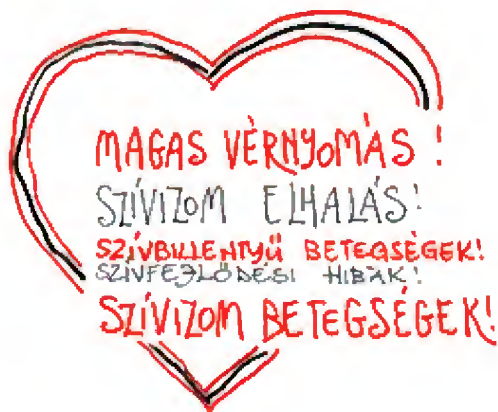 MAGAS VÉRNYOMÁS !
SZÍVIZOM ELHALÁS!
SZÍVBILLENTYŰ BETEGSÉGEK!
SZÍVFEJLŐDÉSI HIBÁK!
SZÍVIZOM BETEGSÉGEK!